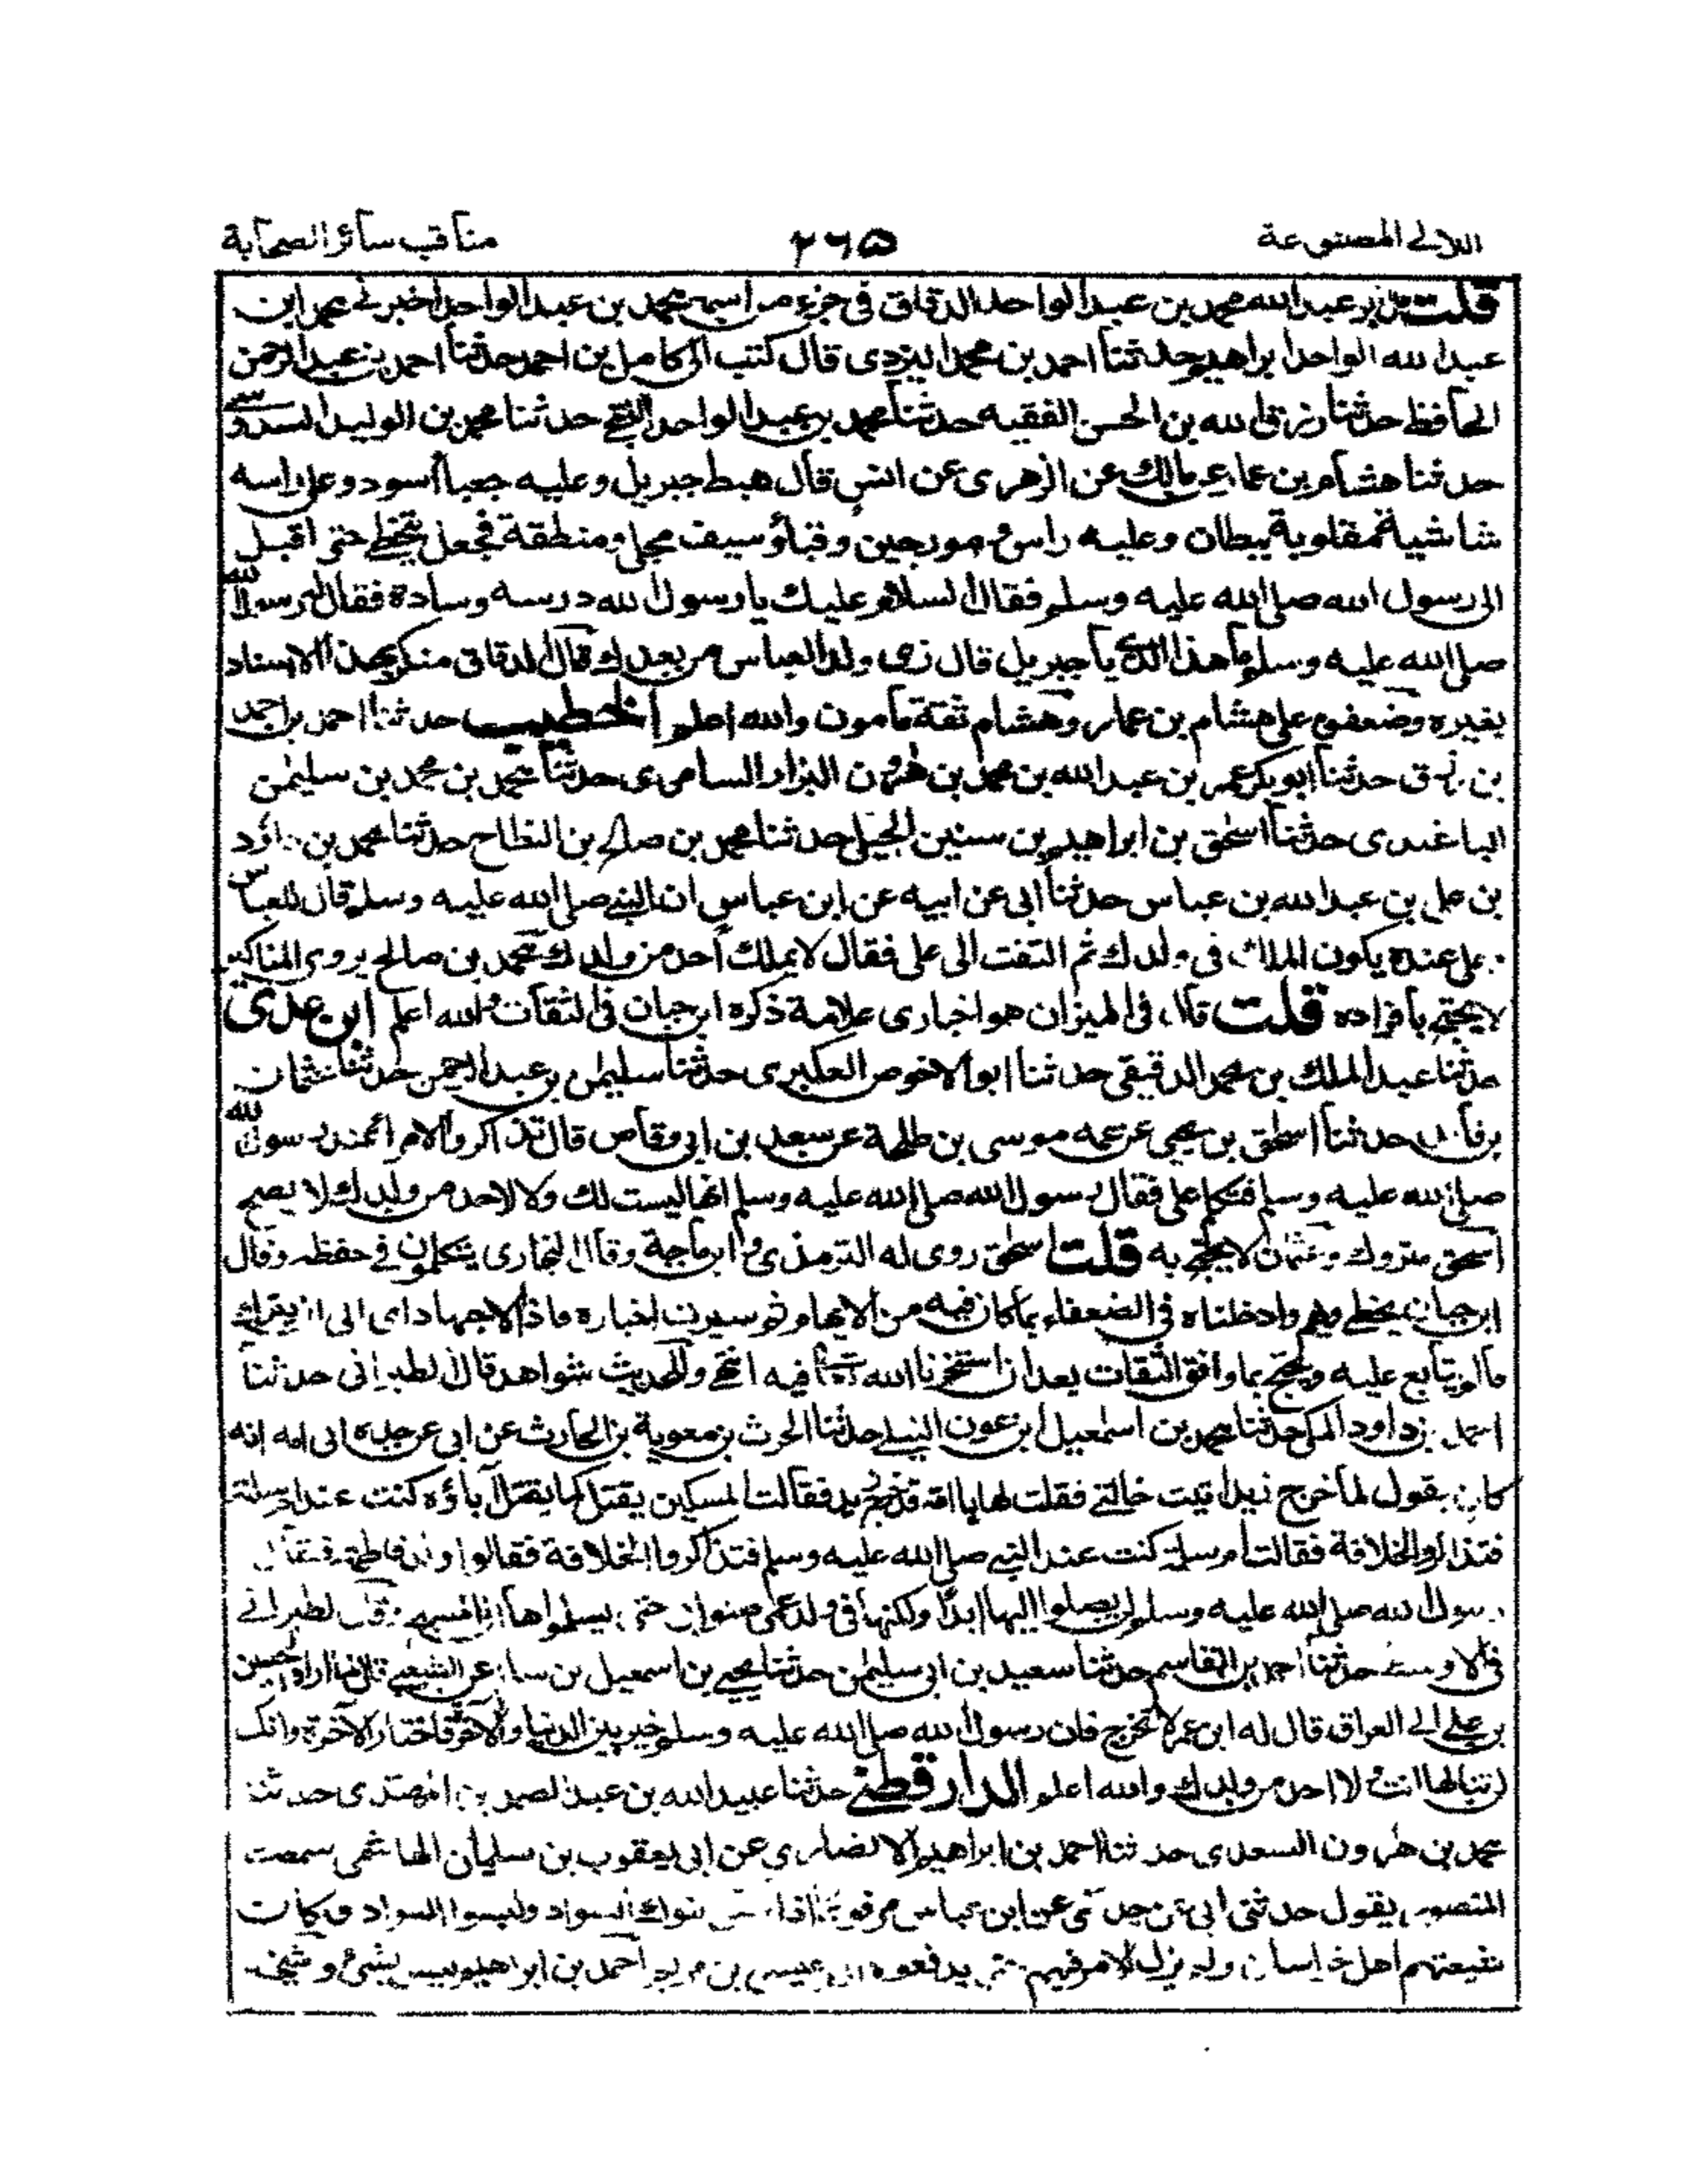 اللالى المصنوعة ٢٦٥ مناقب سائر الصحابة
قلت عبد الله محمد بن عبد الواحد الدقاق فى جزء من اسمه محمد بن عبد الواحد اخبرنى محمد ابن
عبد الله الواحد ابراهيم حدثنا احمد بن محمد اليزدى قال كتب الى كامل بن احمد حدثنا احمد بن عبد الرحمن
الحافظ حدثنا رزق الله بن الحسن الفقيه حدثنا محمد بن عبد الواحد حدثنا محمد بن الوليد
حدثنا هشام بن عمار عن مالك عن الزهرى عن انس قال هبط جبريل وعليه اسود وعلى راسه
شاشية مقلوبة وعليه وقباؤ سيف محلى ومنطقة فجعل حتى اقبل
الى رسول الله صلى الله عليه وسلم فقال السلام عليك يا رسول الله وسادة فقال له رسول الله
صلى الله عليه وسلم ما هذا الزى يا جبريل قال زى ولد العباس من بعدك قال الدقاق منكر بهذا الاسناد
بغيره وضعفوه على هشام بن عمار وهشام ثقة مامون والله اعلم الخطيب حدثنا احمد بن احمد
بن رزق حدثنا ابو بكر عمر بن عبد الله بن محمد بن هرون البزار السامرى حدثنا محمد بن محمد بن سليمن
الباغندى حدثنا اسحق بن ابراهيم بن سنين الجبلى حدثنا محمد بن صالح بن النطاح حدثنا محمد بن داؤد
بن على بن عبد الله بن عباس حدثنا ابى عن ابيه عن ابن عباس ان النبى صلى الله عليه وسلم قال للعباس
وعلى عنده يكون الملك فى ولدك ثم التفت الى على فقال لا يملك احد من ولدك محمد بن صالح يروى المناكير
لا يحتج بافراده قلت قال فى الميزان هو اخبارى علامة ذكره ابن حبان فى الثقات والله اعلم ابن عدى
حدثنا عبد الملك بن محمد الدقيقى حدثنا ابو الاخوص العكبرى حدثنا سليمن بن عبد الرحمن حدثنا عثمان
بن فائد حدثنا اسحق بن يحيى عن عمه موسى بن طلحة عن سعد بن ابى وقاص قال تذاكروا الامر ائ عند رسول الله
صلى الله عليه وسلم فتكلم على فقال رسول الله صلى الله عليه وسلم انها ليست لك ولا لاحد من ولدك لا يصح
اسحق متروك وعثمان لا يحتج به قلت اسحق روى له الترمذى وابن ماجة وقال البخارى يتكلمون فى حفظه وقال
ابن حبان يخطى ويهم وادخلناه فى الضعفاء بما كان فيه من الايهام ثم سبرت اخباره فاذا الاجتهاد ادى الى ان يترك
ما لم يتابع عليه ويحتج بما وافق الثقات بعد ان استخرنا الله فيه انتهى وللحديث شواهد قال الطبرانى حدثنا
احمد بن داود المكى حدثنا محمد بن اسمعيل ابن عون النيلى حدثنا الحرث بن معوية بن الحارث عن ابى عن جده ابى امه انه
كان يقول لما خرج زيد اتيت خالتى فقلت لها يا امه قد خرج زيد فقالت المسكين يقتل كما يقتل اباؤه كنت عند ام سلمة
فتذاكروا الخلافة فقالت ام سلمة كنت عند النبى صلى الله عليه وسلم فتذاكروا الخلافة فقالوا ولد فاطمة فقال
رسول الله صلى الله عليه وسلم لن يصلوا اليها ابدا ولكنها فى ولد عمى صنوابى حتى يسلموها الى المسيح وقال الطبرانى
فى الاوسط حدثنا احمد بن القاسم حدثنا سعيد بن ابى سليمن حدثنا يحيى بن اسمعيل بن سالم عن الشعبى قال لما اراد الحسين
بن على الى العراق قال له ابن عمر لا تخرج فان رسول الله صلى الله عليه وسلم خير بين الدنيا والآخرة فاختار الآخرة وانك
لن تنالها انت ولا احد من ولدك والله اعلم الدارقطنى حدثنا عبيد الله بن عبد الصمد بن المهتدى حدثنا
محمد بن هرون السعدى حدثنا احمد بن ابراهيم الانصارى عن ابى يعقوب بن سليمان الهاشمى سمعت
المنصور يقول حدثنى ابى عن جدى عن ابن عباس مرفوعا اذا السواد ولبسوا السواد وكانت
شيعتهم اهل خراسان ولم يزل الامر فيهم حتى يدفعوه الى عيسى بن مريم احمد بن ابراهيم ليس بشئ وشيخه